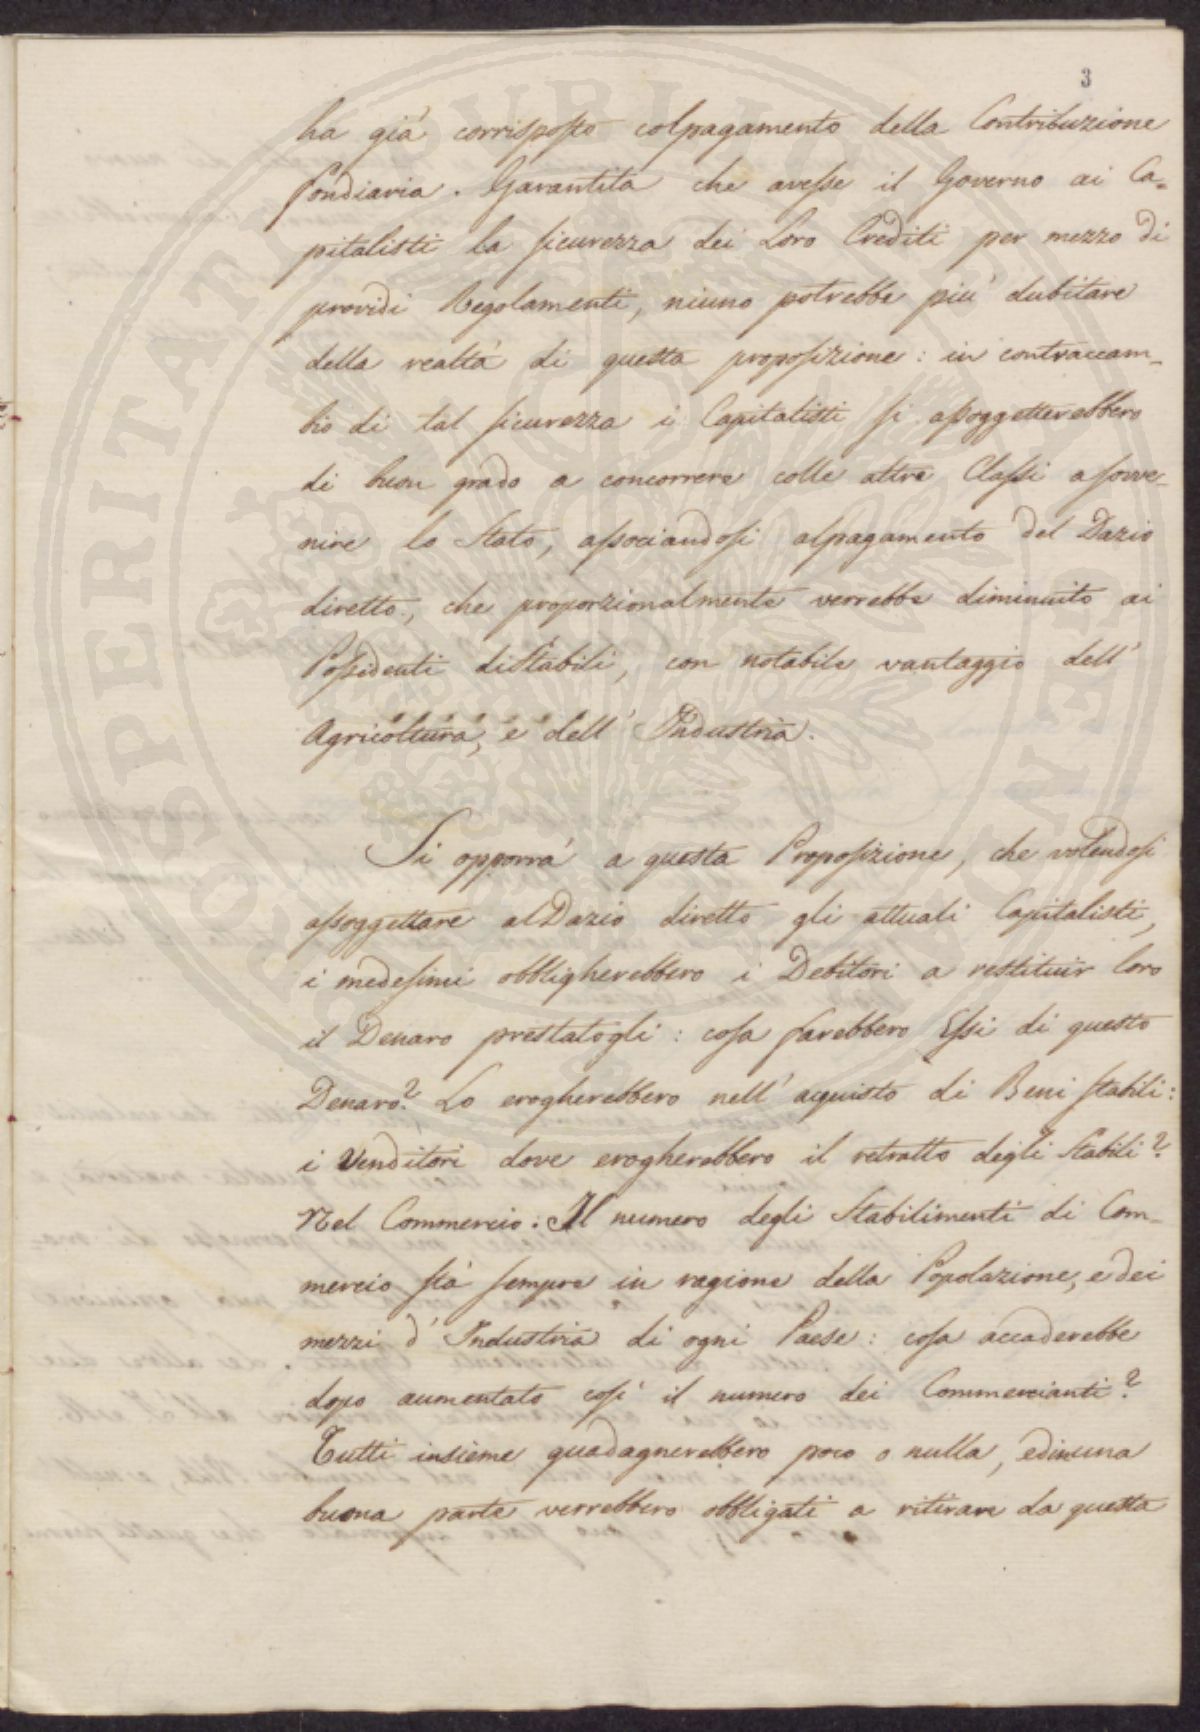 3
ha già corrisposto colpagamento della Contribuzione
fondiaria. Garantita che avesse il Governo ai Ca=
pitalisti la sicurezza dei Loro Crediti per mezzo di
providi Regolamenti, niuno potrebbe più dubitare
della realtà di questa proposizione: in contraccam-
bio di tal sicurezza i Capitalisti si assoggetterebbero
di buon grado a concorrere colle altre Classi a sovve-
nire lo Stato, associandosi alpagamento del Dazio
diretto, che proporzionalmente verrebbe diminuito ai
Possidenti di Stabili, con notabile vantaggio dell'
Agricoltura, e dell' Industria.
Si opporrà a questa Proposizione, che volendosi
assoggettare al Dazio diretto gli attuali Capitalisti,
i medesimi obbligherebbero i Debitori a restituir loro
il Denaro prestatogli: cosa farebbero Essi di questo
Denaro? Lo erogherebbero nell' acquisto di Beni stabili:
i Venditori dove erogherebbero il retratto degli Stabili?
Nel Commercio: Il numero degli Stabilimenti di Com-
mercio stà sempre in ragione della Popolazione, e dei
mezzi d' Industria di ogni Paese: cosa accaderebbe
dopo aumentato così il numero dei Commercianti?
Tutti insieme guadagnerebbero poco o nulla, ed in una
buona parte verrebbero obbligati a ritirare da questa
PROSPERITATI PUBLICAE AUGENDAE